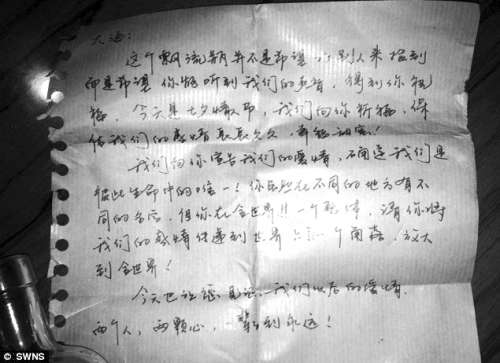 大海：
这个飘流瓶并不是希望，别人来捡到
而是希望你能听到我们的声音，得到你祝
福，今天是七夕，我们向你祈福，保
佑我们的感情真真久久，甜蜜！
我们向你宣告我们的爱情，确定我们是
彼此生命中的唯一！你虽然在不同的地方有不
同的名字，但你在全世界！！一个整体，请你将
我们的感情传递到世界每一个角落，放大
到全世界！
今天也让你见证我们以后的爱情．
两个人，两颗心，一辈到永远！
© SWNS